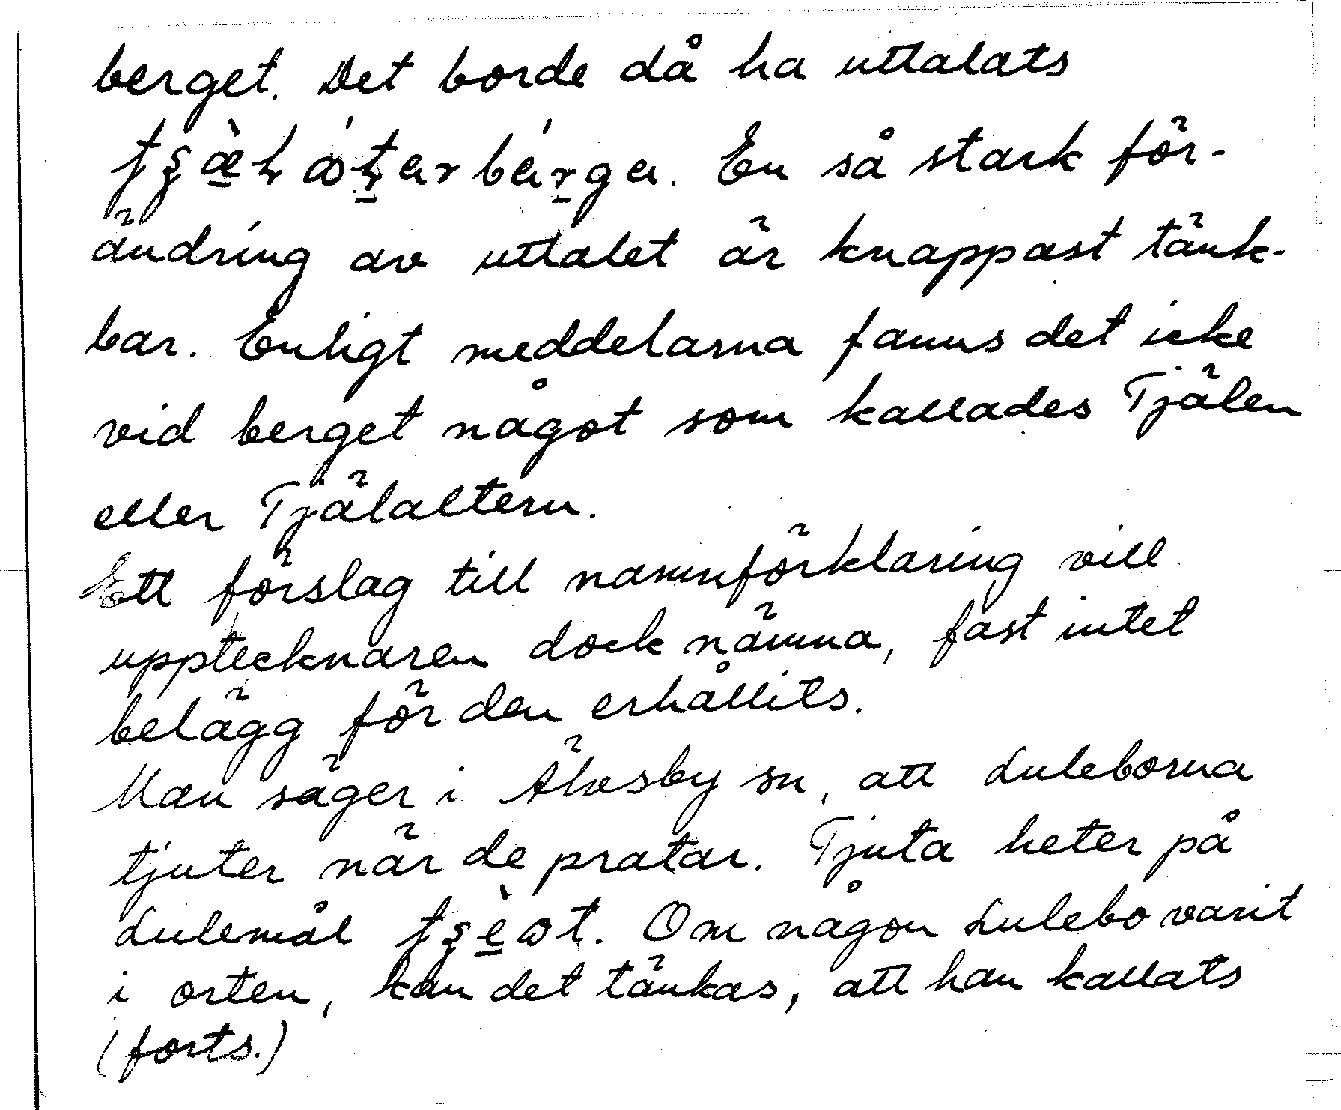 berget. Det borde då ha uttalats
En så stark för-
ändring av uttalet är knappast tänk-
bar. Enligt meddelarna fanns det icke
vid berget något som kallades Tjälen
eller Tjälaltern.
Ett förslag till namnförklaring vill
upptecknaren dock nämna, fast intet
belägg för den erhållits.
Man säger i Älvsby sn, att Luleborna
tjuter när de pratar. Tjuta heter på
Lulemål Om någon Lulebo varit
i orten, kan det tänkas, att han kallats
(forts.)